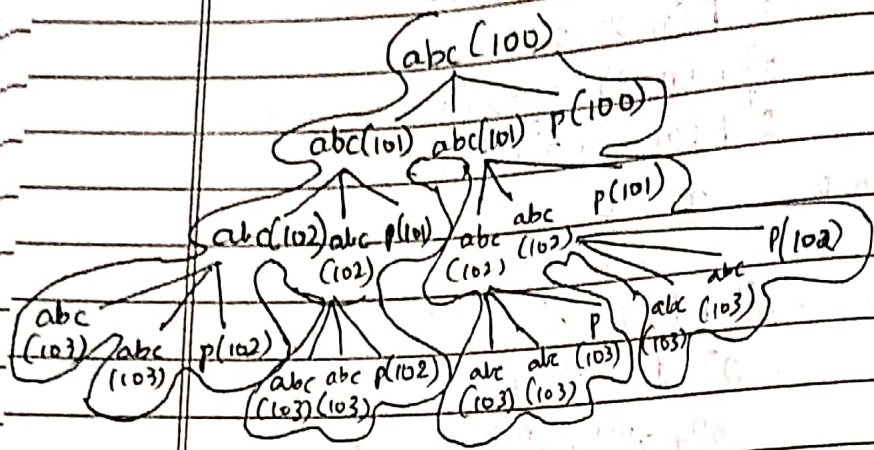 abc(100)
abc(101) abc(101) p(100)
abc(102) abc(102) p(101) abc(102) abc(102) p(101)
abc(103) abc(103) p(102) abc(103) abc(103) p(102) abc(103) abc(103) p(103) abc(103) abc(103) p(102)